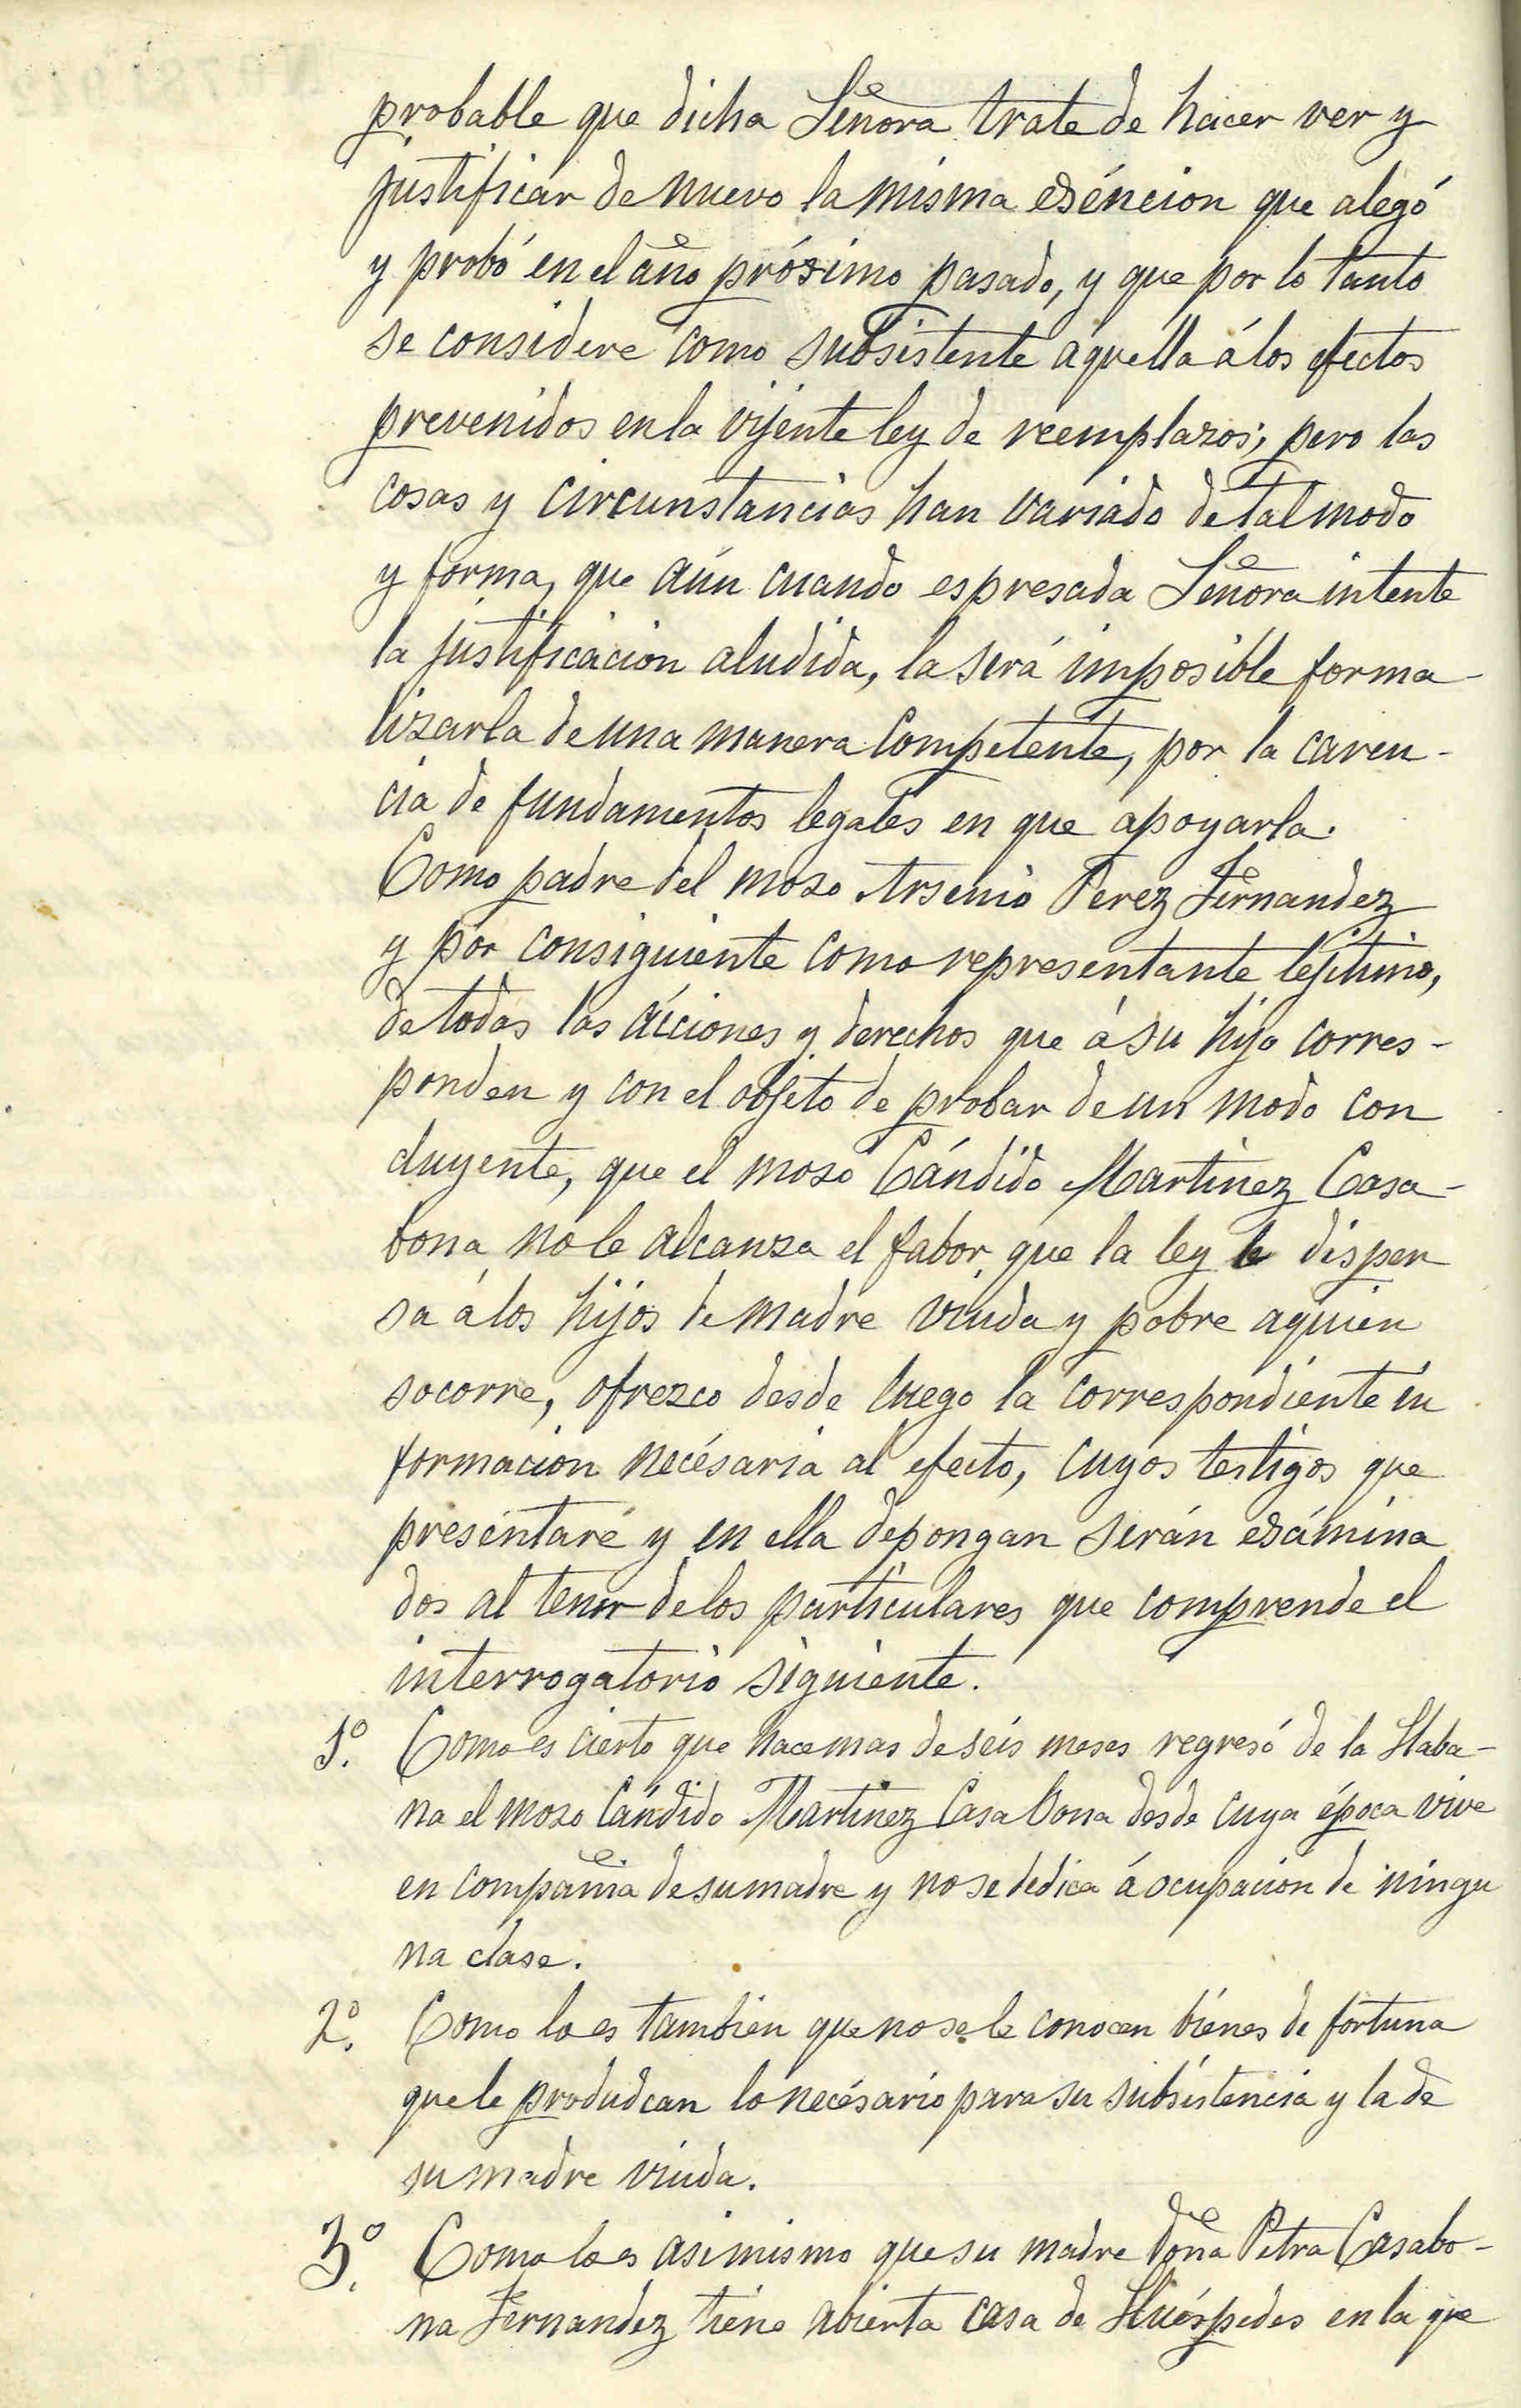 probable que dicha Señora trate de hacer ver y
justificar de nuevo la misma exéncion que alegó
y probó en el año próximo pasado, y que por lo tanto
se considere como subsistente aquella á los efectos
prevenidos en la vijente ley de reemplazos; pero las
cosas y circunstancias han variado de tal modo
y forma, que aún cuando espresada Señora intente
la justificacion aludida, la será imposible forma-
lizarla de una manera competente, por la caren-
cia de fundamentos legales en que apoyarla.
Como padre del mozo Arsenio Perez Fernandez
y por consiguiente como representante lejitimo,
de todas las acciones y derechos que á su hijo corres-
ponden y con el objeto de probar de un modo con
cluyente, que el mozo Cándido Martinez Casa-
bona no le alcanza el fabor que la ley le dispen
sa á los hijos de madre viuda y pobre aquien
socorre, ofrezco desde luego la correspondiente in
formacion necésaria al efecto, cuyos testigos que
presentaré y en ella depongan serán exámina
dos al tenor de los particulares que comprende el
interrogatorio siguiente.
1º. Como es cierto que hace mas de seis meses regresó de la Haba-
na el mozo Cándido Martinez Casabona desde cuya época vive
en compañia de su madre y no se dedica á ocupacion de ningu
na clase.
2º. Como lo es tambien que no se le conocen bienes de fortuna
que le produdcan lo necésario para su subsistencia y la de
su madre viuda.
3º. Como lo es asimismo que su madre Doña Petra Casabo-
na Fernandez tiene abierta casa de Huéspedes en la que